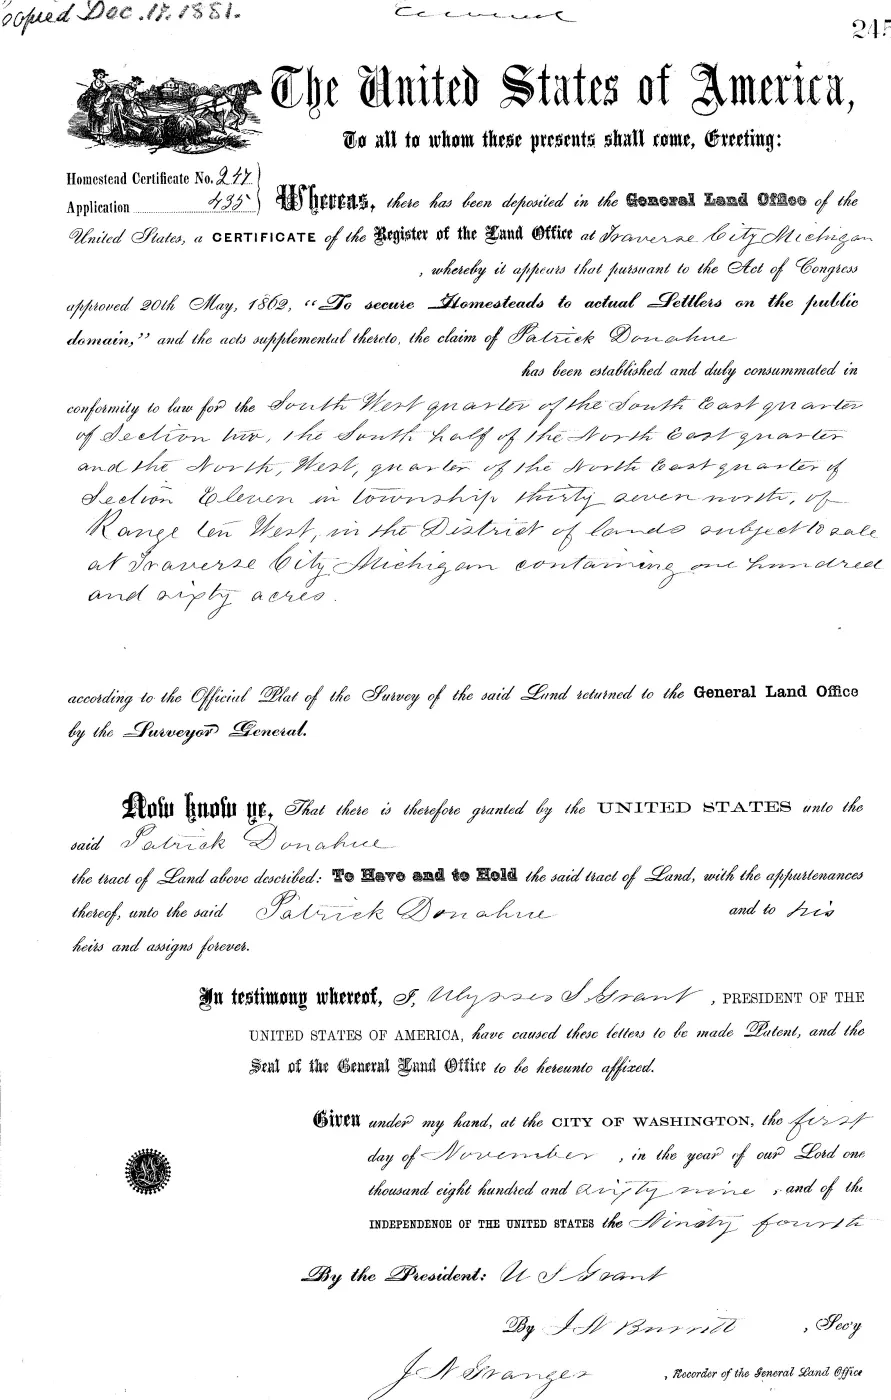 Copied Dec. 17. 1881.
245
The United States of America,
To all to whom these presents shall come, Greeting:
Homestead Certificate No. 247
Application 435
Whereas, there has been deposited in the General Land Office of the
United States, a CERTIFICATE of the Register of the Land Office at Traverse City Michigan
, whereby it appears that pursuant to the Act of Congress
approved 20th May, 1862, "To secure Homesteads to actual Settlers on the public
domain," and the acts supplemental thereto, the claim of Patrick Donahue
has been established and duly consummated in
conformity to law for the South West quarter of the South East quarter
of Section two, the South half of the North East quarter
and the North, West, quarter of the North East quarter of
Section Eleven in township thirty seven north, of
Range ten West, in the District of lands subject to sale
at Traverse City Michigan containing one hundred
and sixty acres.
according to the Official Plat of the Survey of the said Land returned to the General Land Office
by the Surveyor General.
Now know ye, That there is therefore granted by the UNITED STATES unto the
said Patrick Donahue
the tract of Land above described: To Have and to Hold the said tract of Land, with the appurtenances
thereof, unto the said Patrick Donahue and to his
heirs and assigns forever.
In testimony whereof, I, Ulysses S Grant, PRESIDENT OF THE
UNITED STATES OF AMERICA, have caused these letters to be made Patent, and the
Seal of the General Land Office to be hereunto affixed.
Given under my hand, at the CITY OF WASHINGTON, the first
day of November, in the year of our Lord one
thousand eight hundred and sixty nine, and of the
INDEPENDENCE OF THE UNITED STATES the Ninety fourth
By the President: U S Grant
By , Sec'y
J N Granger, Recorder of the General Land Office